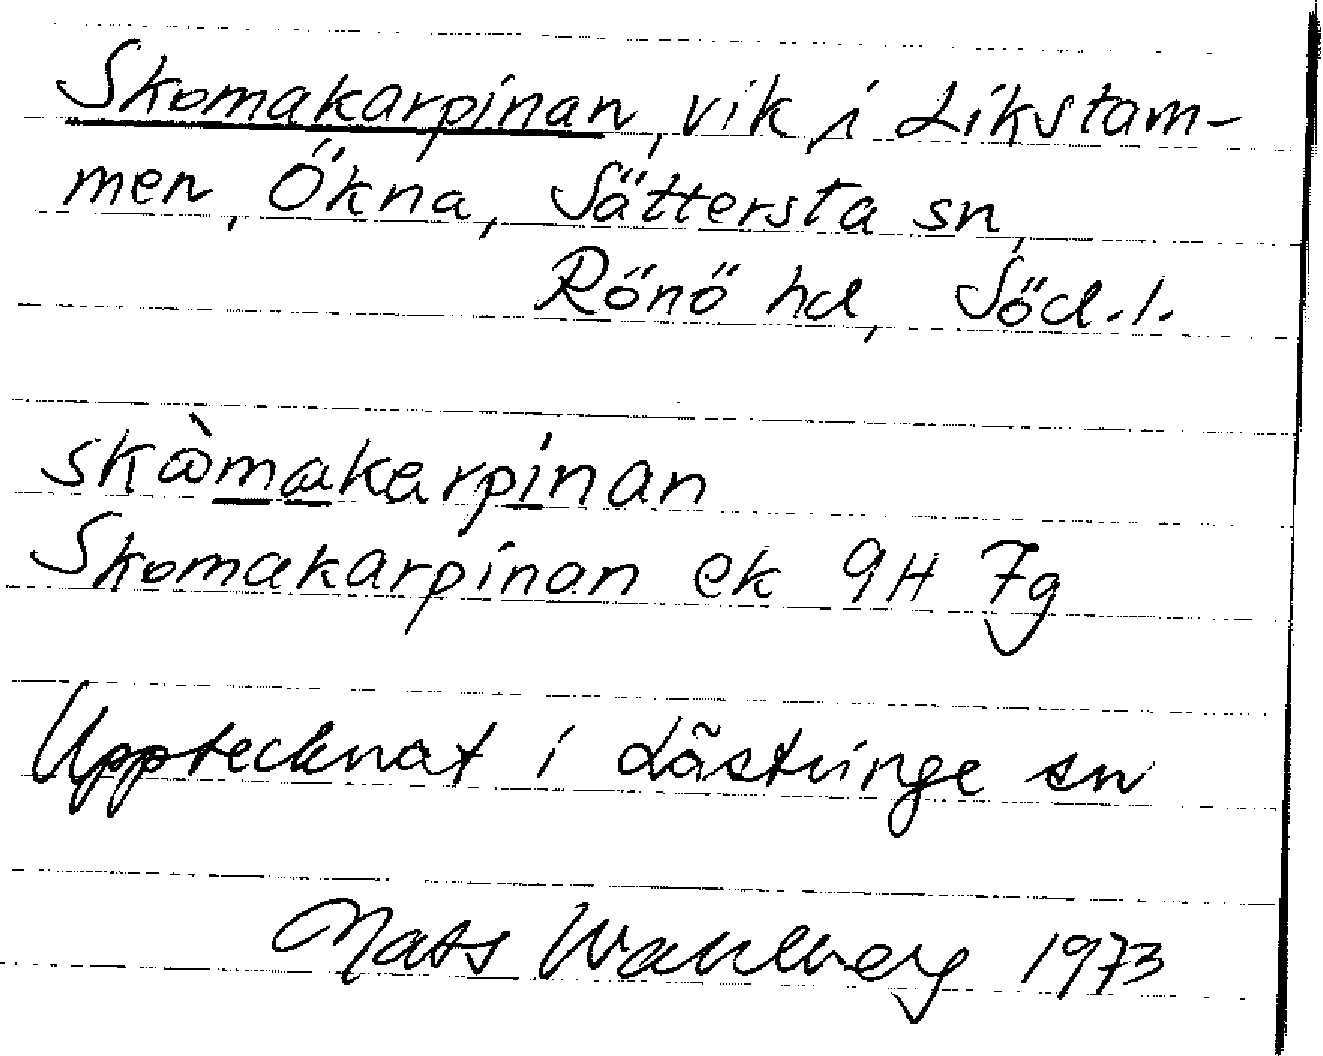 Skomakarpinan, vik i Likstam-
men, Ökna, Sättersta sn,
Rönö hd, Söd.l.
skòmakarpinan
Skomakarpinan ek 9H 7g
Upptecknat i Lästringe sn
Mats Wahlberg 1973